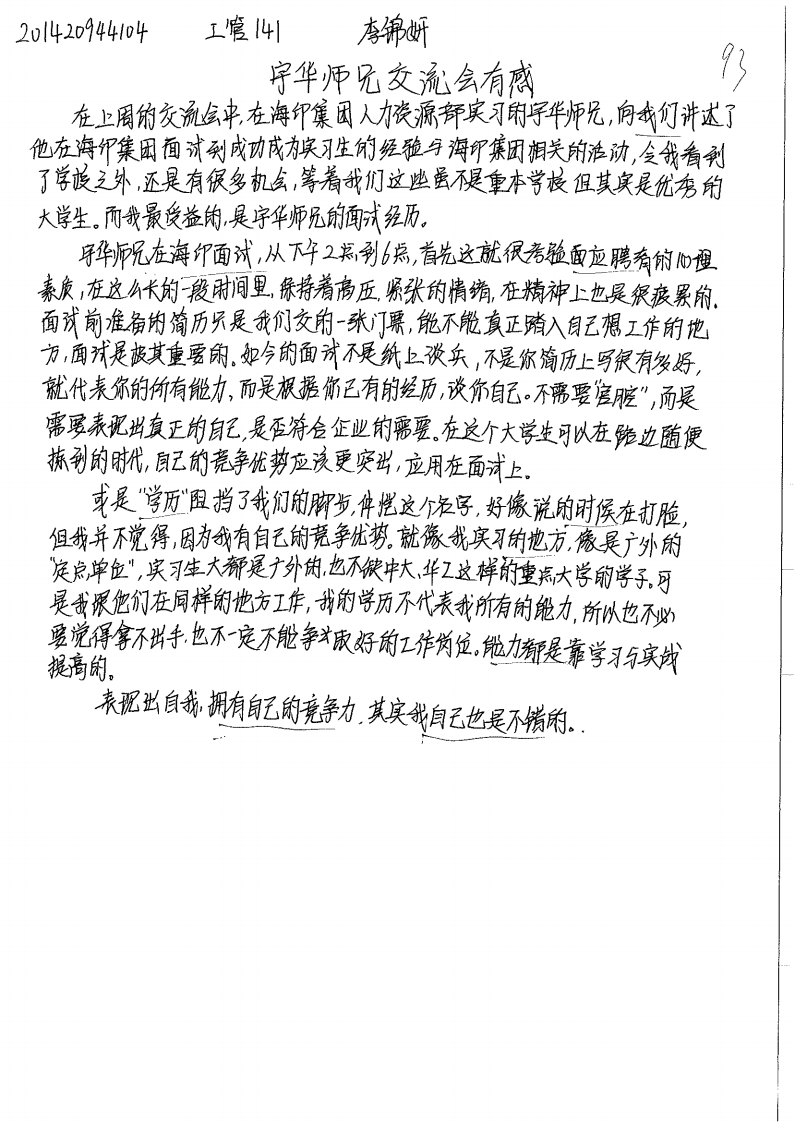 201420944104 工管141 李锦妍
93
宇华师兄交流会有感
在上周的交流会中,在海印集团人力资源部实习的宇华师兄,向我们讲述了
他在海印集团面试到成功成为实习生的经验与海印集团相关的活动,令我看到
了学校之外,还是有很多机会,等着我们这些虽不是重本学校但其实是优秀的
大学生。而我最受益的,是宇华师兄的面试经历。
宇华师兄在海印面试,从下午2点到6点,首先这就很考验面应聘者的心理
素质,在这么长的一段时间里,保持着高压、紧张的情绪,在精神上也是很疲累的.
面试前准备的简历只是我们交的一张门票,能不能真正踏入自己想工作的地
方,面试是极其重要的。如今的面试不是纸上谈兵,不是你简历上写很有多好,
就代表你的所有能力、而是根据你已有的经历,谈你自己。不需要“官腔”,而是
需要表现出真正的自己,是否符合企业的需要。在这个大学生可以在路边随便
拣到的时代,自己的竞争优势应该更突出,应用在面试上。
或是“学历”阻挡了我们的脚步,仲恺这个名字,好像说的时候在打脸,
但我并不觉得,因为我有自己的竞争优势。就像我实习的地方,像是广外的
“定点单位”,实习生大都是广外的,也不缺中大、华工这样的重点大学的学子。可
是我跟他们在同样的地方工作,我的学历不代表我所有的能力,所以也不必
要觉得拿不出手,也不一定不能争取好的工作岗位。能力都是靠学习与实战
提高的。
表现出自我,拥有自己的竞争力,其实我自己也是不错的。